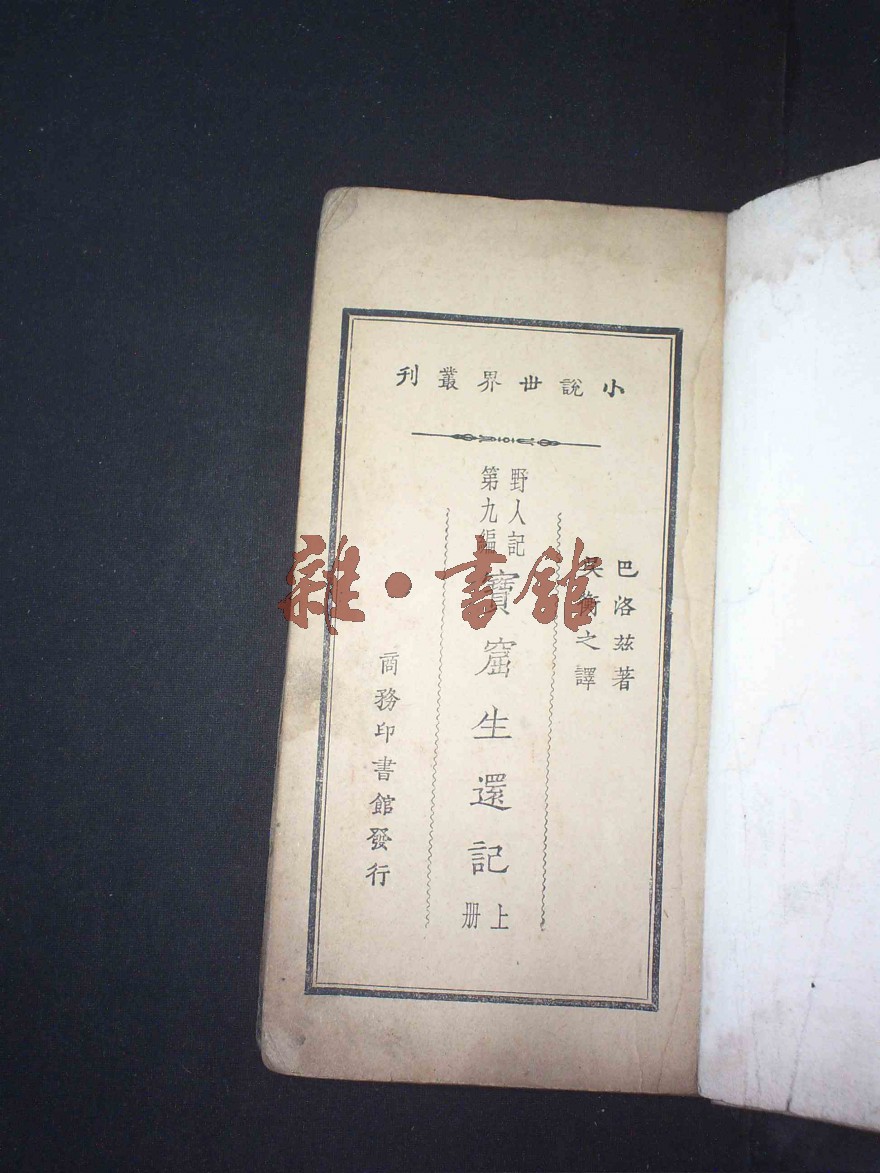 小說世界叢刊
巴洛茲著
吳衡之譯
野人記
第九編
寶窟生還記
上
册
商務印書館發行
雜·書館